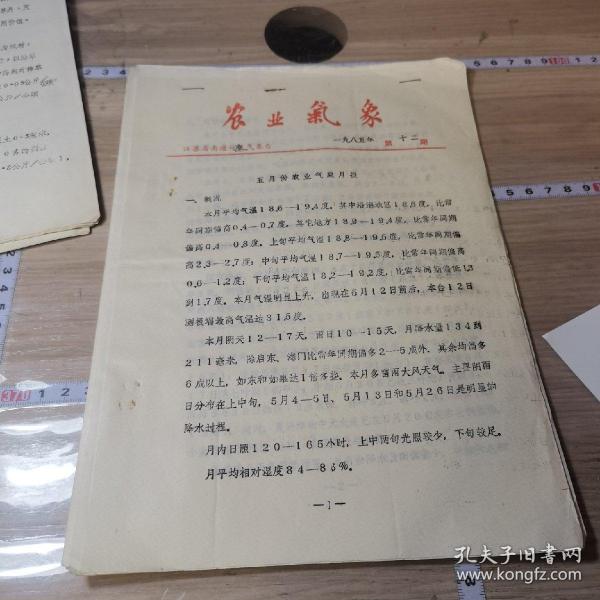 农业氣象
一九八五年 第十二期
五月份农业气象月报
一、概况
本月平均气温18.6—19.4度,其中沿海地区18.6度,比常
年同期偏高0.4—0.7度,其它地方18.9—19.4度,比常年同期
偏高0.4—0.8度。上旬平均气温18.8—19.5度,比常年同期偏
高2.3—2.7度;中旬平均气温18.7—19.5度,比常年同期偏高
0.6—1.2度;下旬平均气温18.2—19.2度,比常年同期偏低1.3
到1.7度。本月气温明显上升,出现在5月12日前后,本台12日
测得极端最高气温达31.5度。
本月阴天12—17天,雨日10—15天,月降水量134到
211毫米,除启东、海门比常年同期偏多2—5成外,其余均偏多
6成以上,如东和如皋达1倍多些。本月多雷雨大风天气。主要阴雨
日分布在上中旬,5月4—5日、5月13日和5月26日是明显的
降水过程。
月内日照120—165小时,上中两旬光照较少,下旬较足。
月平均相对湿度84—86%。
—1—
孔夫子旧书网
www.kongfz.com